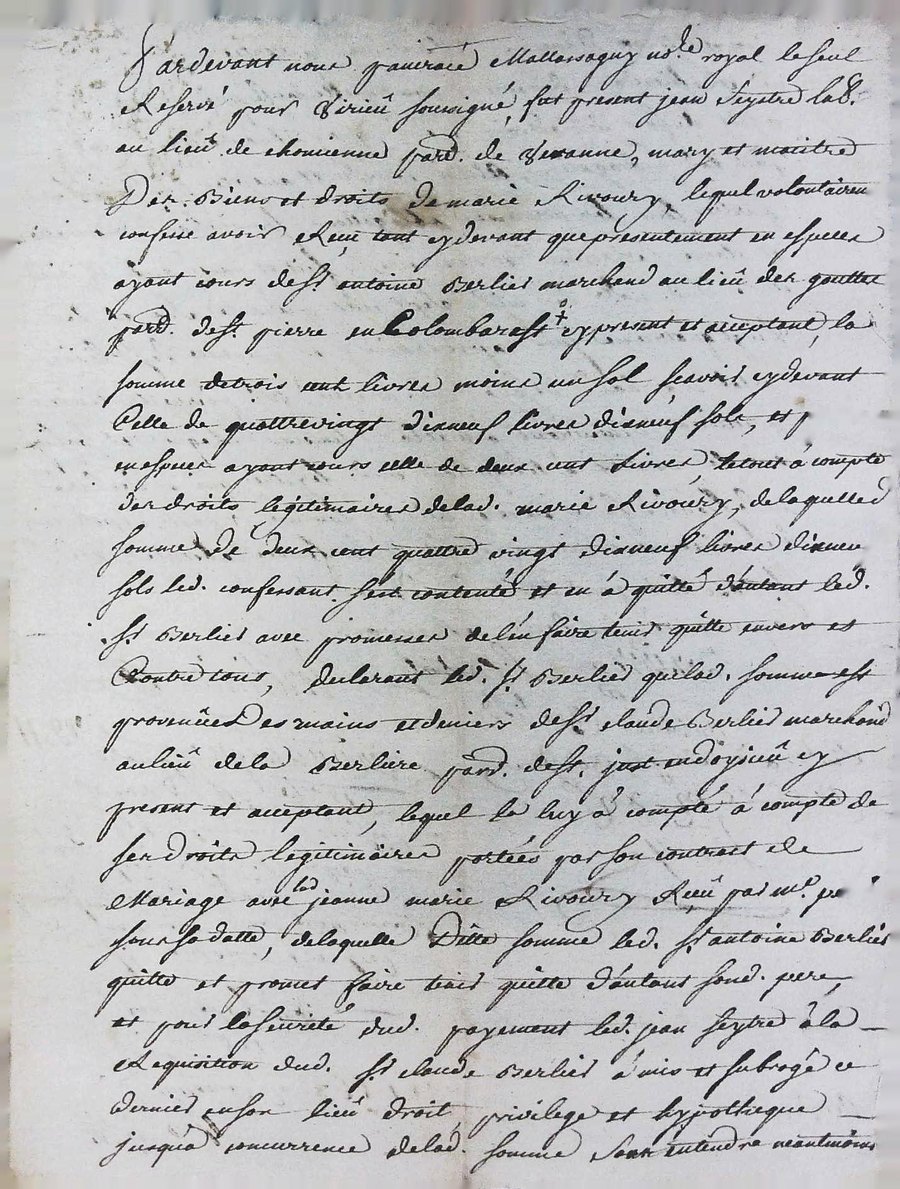 Pardevant nous pancrace Mallassagny no.re royal le seul
Reservé pour Virieû soussigné, fut present jean Seytre lab.r
au lieû de chomienne parr. de Veranne, mary et maitre
Des Biens et droits de marie Rivoury, lequel volontairem
confesse avoir Reçu tant cydevant que presentement en especes
ayant cours de s.r antoine Berlier marchand au lieû des gouttes
parr. de S.t pierre en Colombarest + cy present et acceptant, la
somme de trois cent livres moins un sol scavoir cydevant
Celle de quattrevingt dixneuf livres dixneuf sols, et p
en especes ayant cours celle de deux cent Livres, le tout à compte
des droits légitimaires de lad. marie Rivoury, de laquelled
somme de deux cent quattre vingt dixneuf livres dixneu
sols led. confessant s'est contenté et en à quitté d'autant led.
s.r Berlier avec promesses de l'en faire tenir quitte envers et
Contre tous, declarant led. s.r Berlier que lad. somme est
provenüe Des mains et deniers de s.r claude Berlier marchand
au lieû de la Berliere parr. de S.t just en doysieû cy
present et acceptant, lequel la luy à compté à compte de
ses droits legitimaires portées par son contract de
Mariage avec lad jeanne marie Rivoury Reçû par m.e
sous sa datte, de laquelle Ditte somme led. s.r antoine Berlier
quitte et promet faire tenir quitte d'autant sond. pere,
et pour la seureté dud. payement led. jean Seytre à la
Requisition dud. s.r claude Berlier à mis et subrogé ce
dernier en son lieû droit privilege et hypotheque
jusqu'à concurrence de lad. somme sans entendre neantmoins